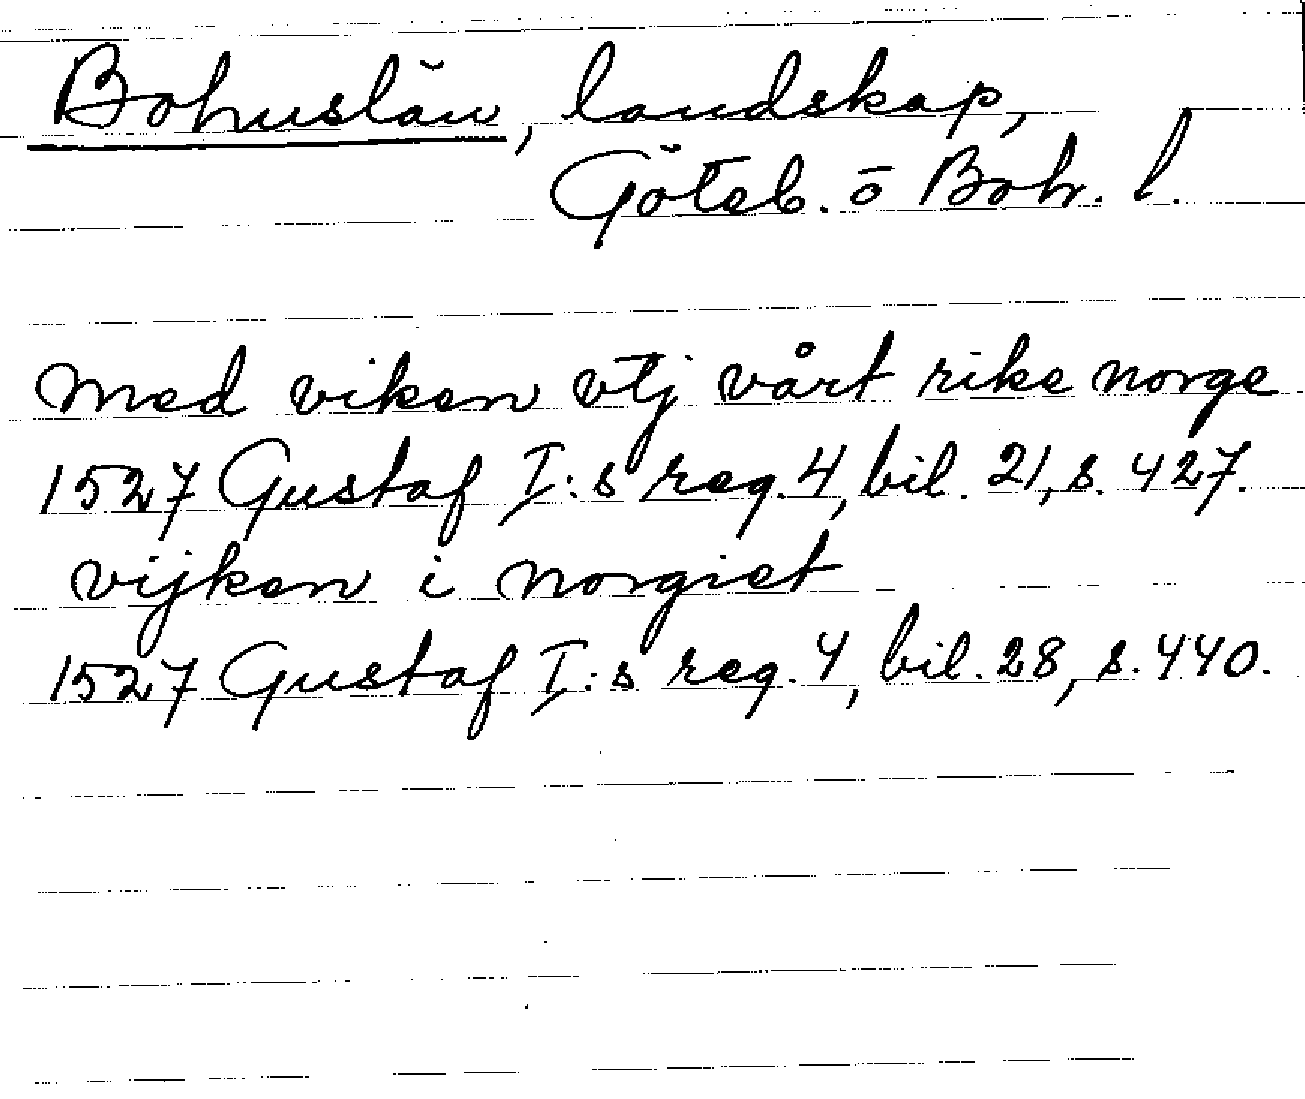 Bohuslän, landskap,
Göteb. o Boh. l.
med viken vtj vårt rike norge
1527 Gustaf I:s reg. 4, bil. 21, s. 427.
vijken i norgiet
1527 Gustaf I:s reg. 4, bil. 28, s. 440.